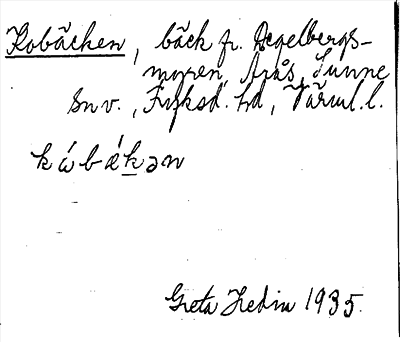 Kobäcken, bäck fr. Degelbergs-
myren, Årås, Sunne
sn v., Fryksd. hd, Värml. l.
kὼbǽkən
Greta Hedin 1935.